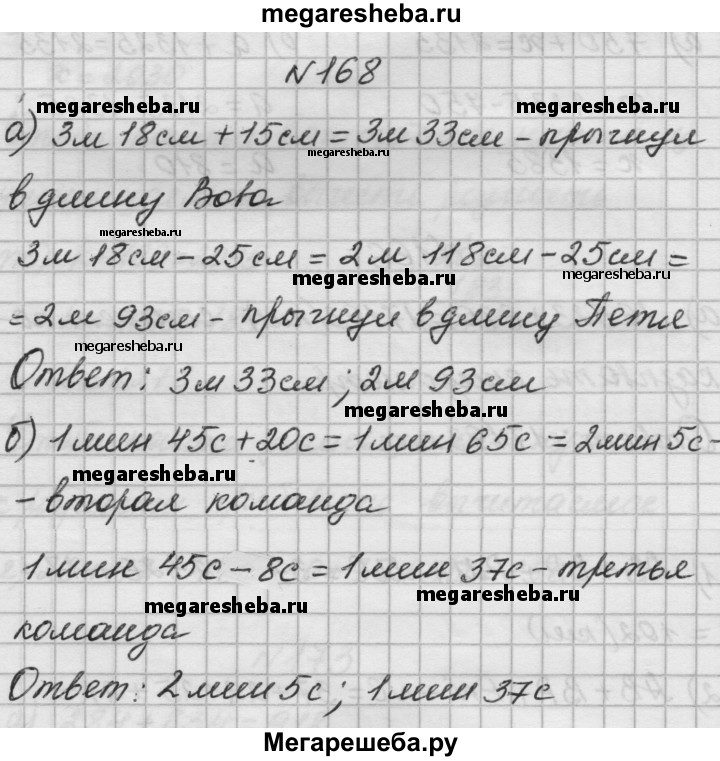 megaresheba.ru
N168
megaresheba.ru megaresheba.ru
а) 3м 18см + 15см = 3м 33см - прыгнул
megaresheba.ru
в длину Вова
megaresheba.ru
3м 18см - 25см = 2м 118см - 25см =
megaresheba.ru megaresheba.ru
= 2м 93см - прыгнул в длину Петя
megaresheba.ru
Ответ: 3м 33см; 2м 93см
megaresheba.ru
б) 1мин 45с + 20с = 1мин 65с = 2мин 5с -
megaresheba.ru
- вторая команда
1мин 45с - 8с = 1мин 37с - третья
megaresheba.ru megaresheba.ru
команда
Ответ: 2мин 5с; 1мин 37с
Мегарешеба.ру